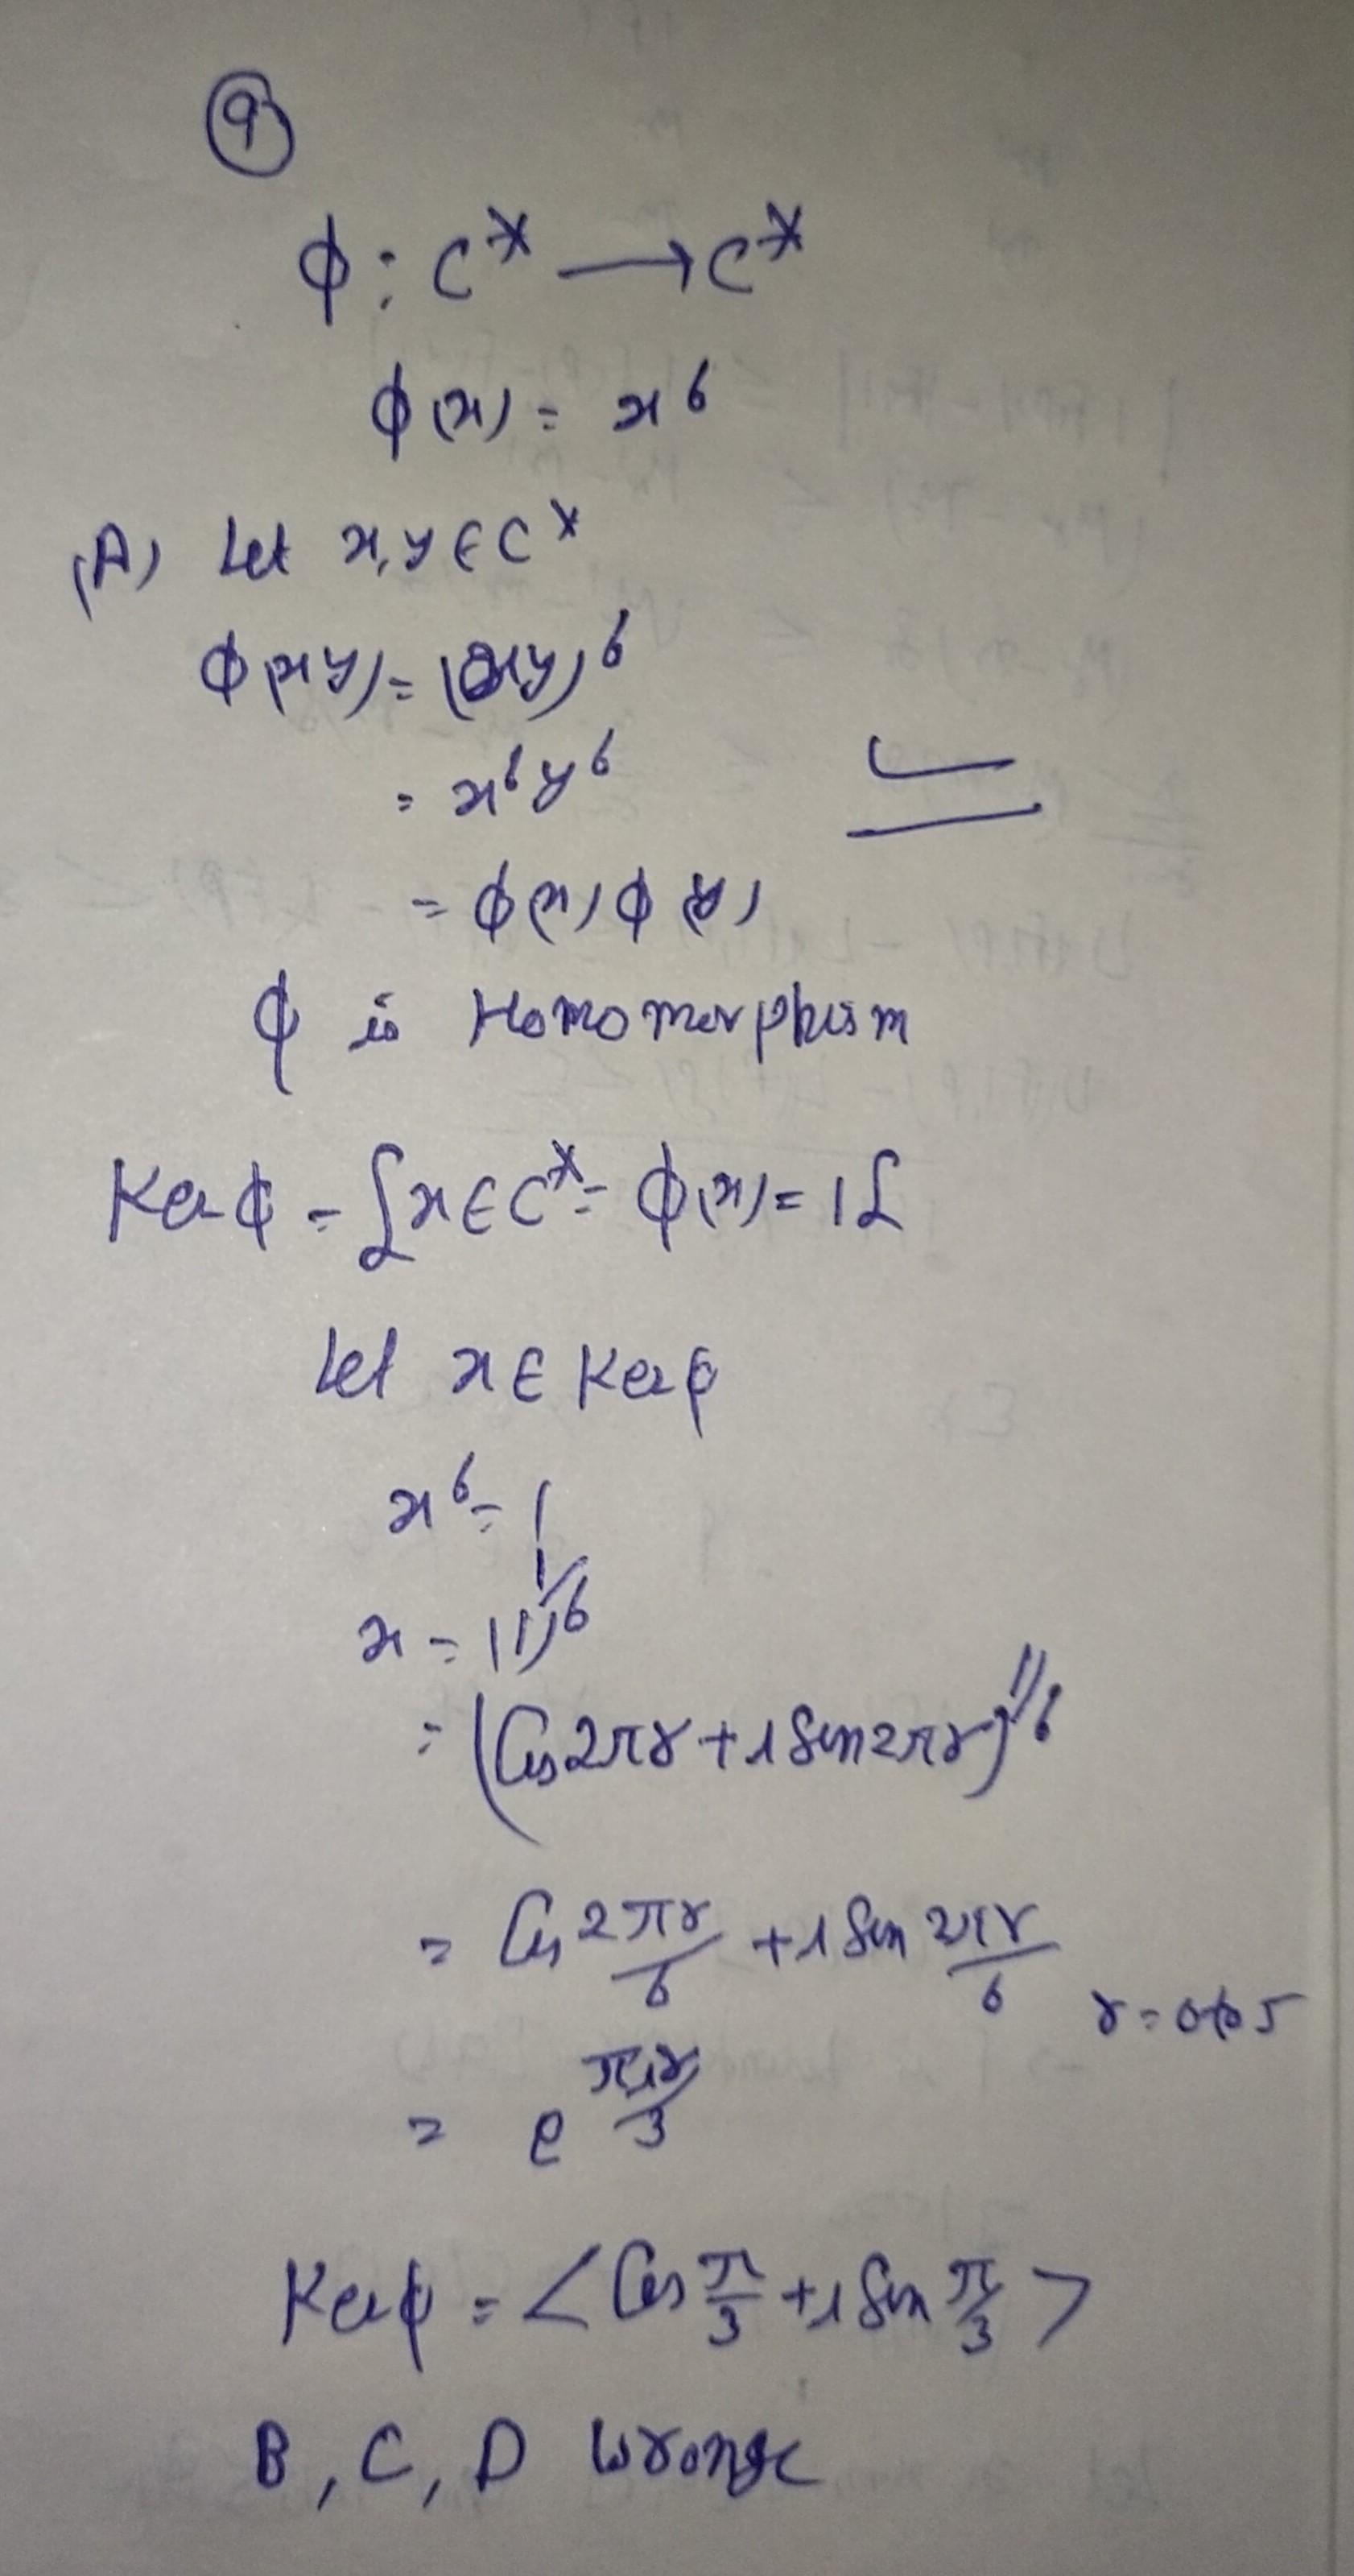 9
ϕ : C* → C*
ϕ(x) = x⁶
(A) Let x, y ∈ C*
ϕ(xy) = (xy)⁶
= x⁶y⁶
= ϕ(x) ϕ(y)
ϕ is Homomorphism
Ker ϕ = {x ∈ C* : ϕ(x) = 1}
Let x ∈ Ker ϕ
x⁶ = 1
x = (1)^1/6
= (Cos 2πr + i Sin 2πr)^1/6
= Cos 2πr/6 + i Sin 2πr/6 r = 0 to 5
= e^πir/3
Ker ϕ = < Cos π/3 + i Sin π/3 >
B, C, D wrong